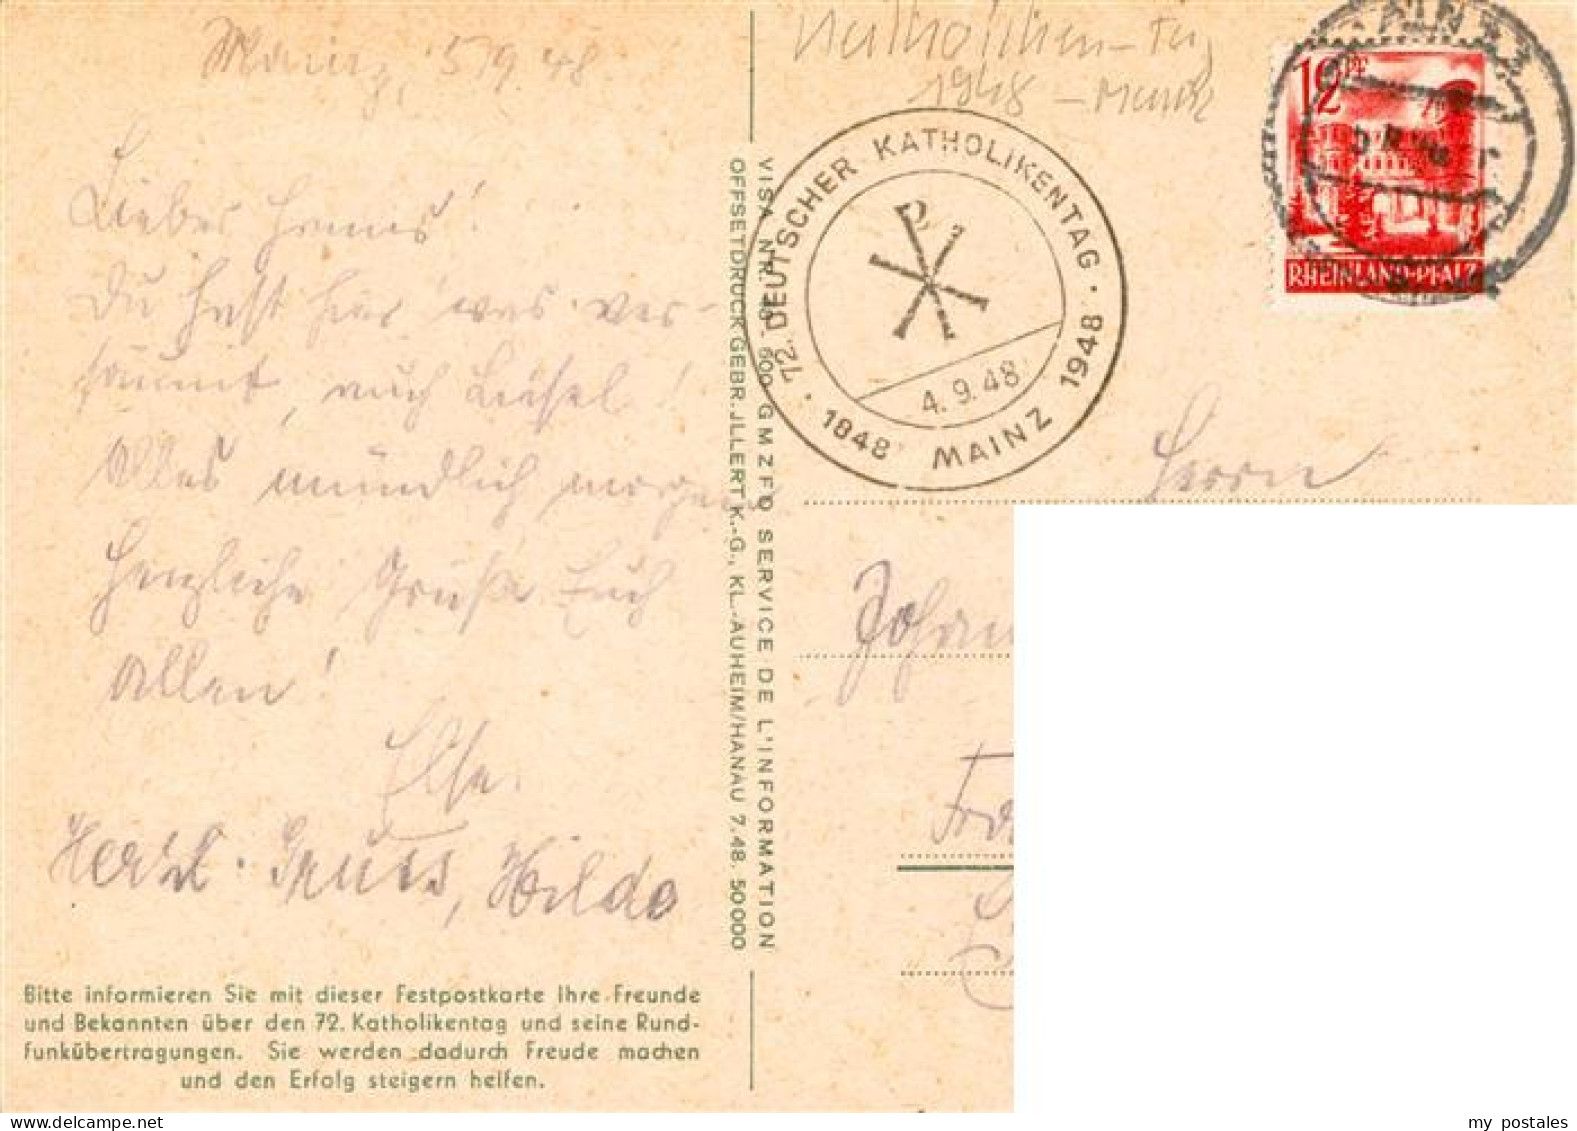 Mainz, 5/9 48
Lieber Hannis!
Du hast hier was ver-
säumt, auch Liesel!
Alles mündlich morgen
Herzliche Grüße Euch
Allen!
Else.
Herzl. Gruss, Hilde
Bitte informieren Sie mit dieser Festpostkarte Ihre Freunde
und Bekannten über den 72. Katholikentag und seine Rund-
funkübertragungen. Sie werden dadurch Freude machen
und den Erfolg steigern helfen.
VISA NR. GMZFO SERVICE DE L'INFORMATION
OFFSETDRUCK GEBR. JLLERT K.-G., KL.-AUHEIM/HANAU 7.48. 50000
Katholiken-Tag
1948 - Mainz
72. DEUTSCHER KATHOLIKENTAG
1848 MAINZ 1948
4.9.48
12 PF
RHEINLAND-PFALZ
MAINZ
Herrn
Johan
my postales